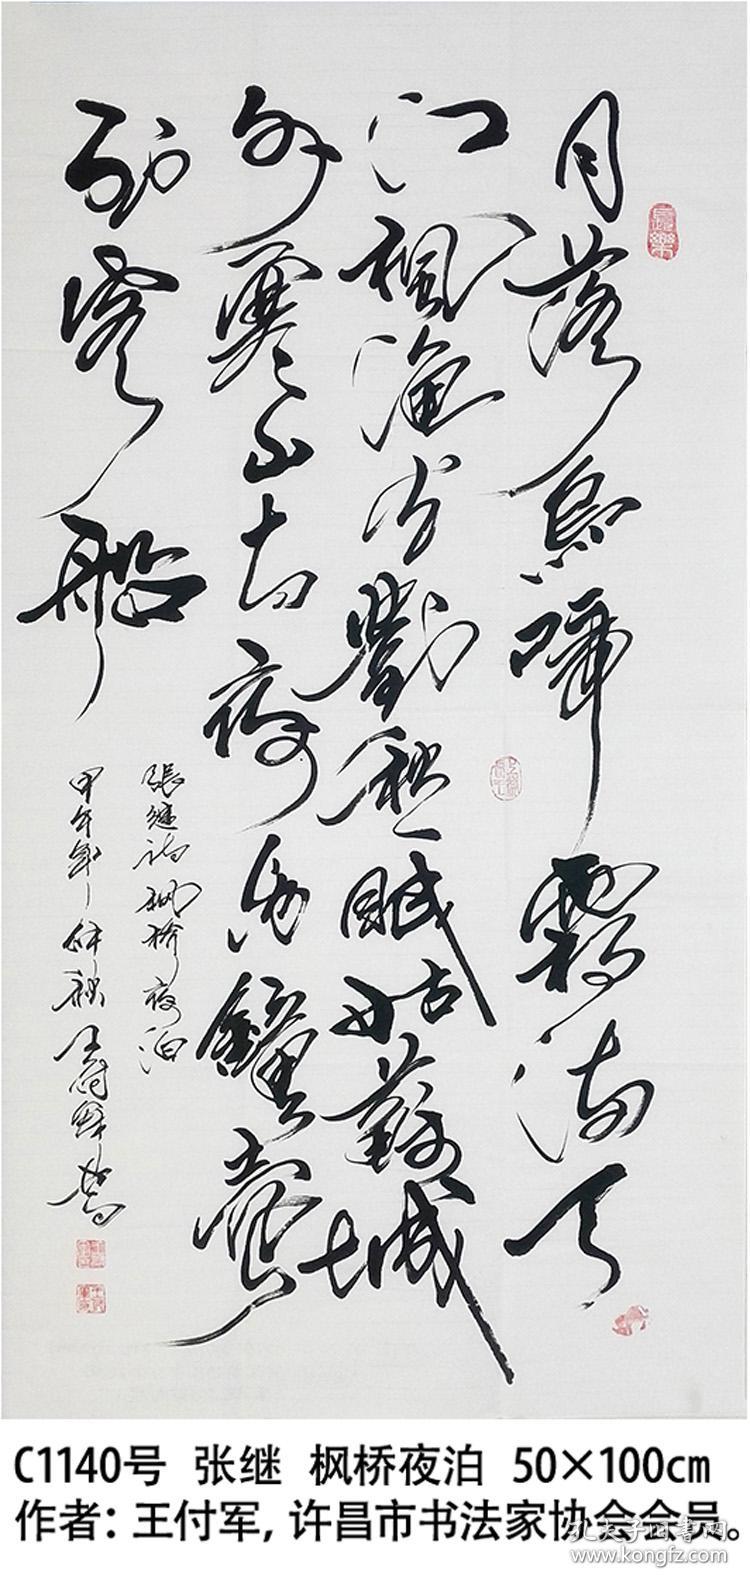 月落烏啼霜满天
江楓渔火對愁眠姑蘇城
外寒山寺夜半鐘聲
到客船
張继诗枫桥夜泊
甲午年仲秋王付軍書
C1140号 张继 枫桥夜泊 50×100cm
作者：王付军，许昌市书法家协会会员。
孔夫子旧书网
www.kongfz.com